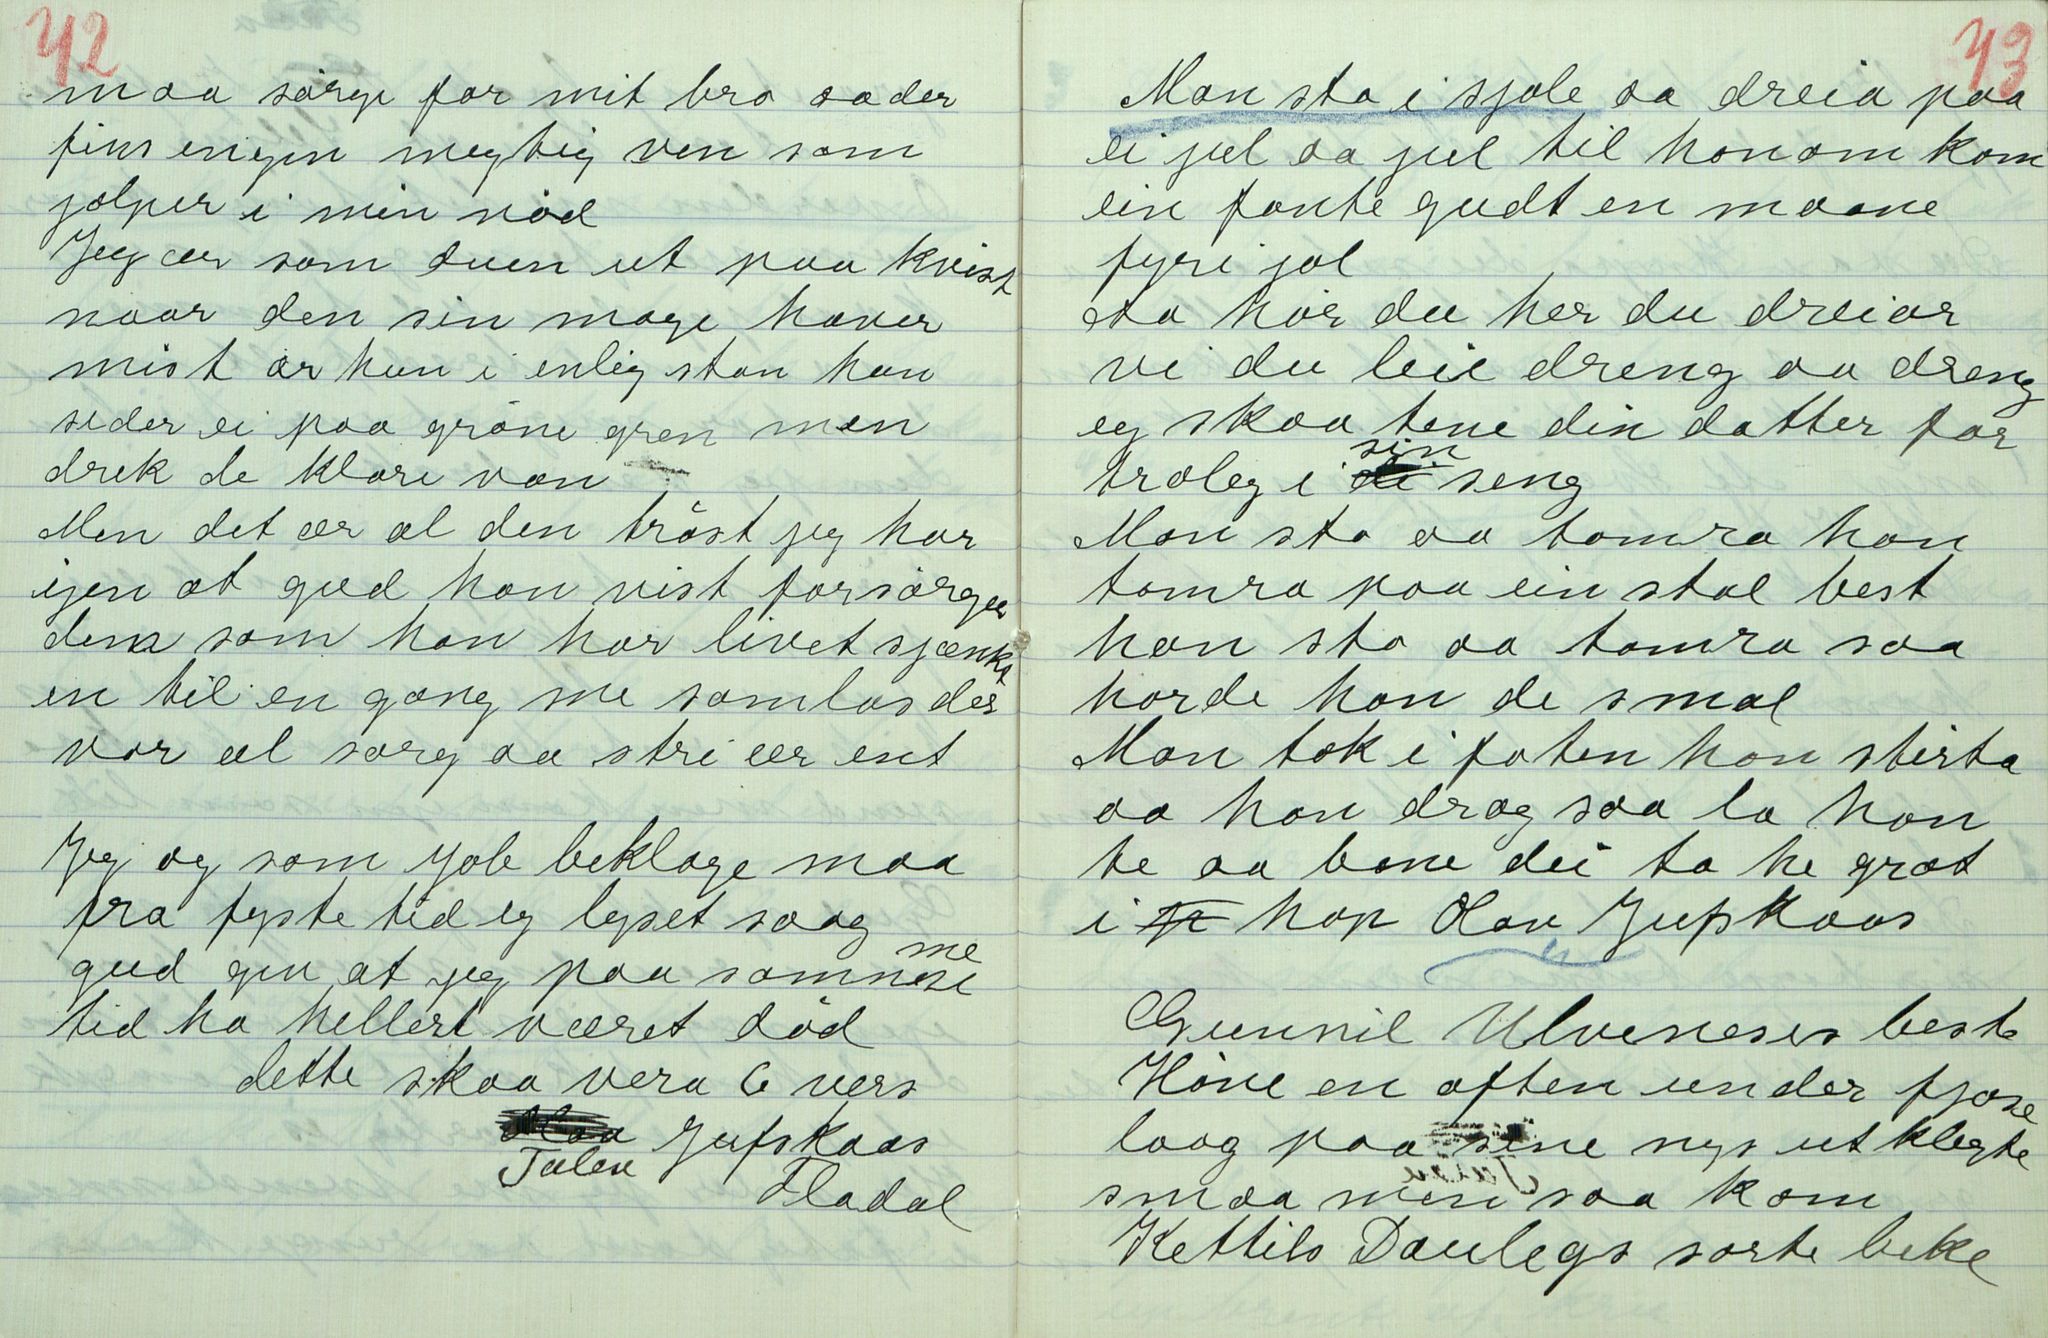 42
maa sørge for mit brø oader
fins engen megtig ven som
jølper i min nød
Jeg ær som duen ut paa kvist
naar den sin mage haver
mist ør hun i enlig stan han
seder ei paa grøne gren men
drek de klare van
Men det ær al den trøst jeg har
igen at gud han vist forsørger
dem som han har livet sjænkt
en til en gang me samlas der
vor al sorg aa stri ær ent
Jeg og som Job beklage maa
fra fyste tid eg lyset saag
gud gev at jeg paa samme
tid ha hellert været død
dette skaa vera 6 vers
Talen Jufskaas
Fladal
43
Han sta i sjøle aa dreia paa
ei jul aa jul til honom kom
ein fante gudt en maane
fyri jol
sta hør du her du dreiar
vi du leie dreng aa dreng
eg skaa tene din datter for
troleg i sin seng
Han sta aa tømra han
tømra paa ein stal best
han sta aa tømra saa
horde han de smal
Han tok i foten han stirta
aa han drog saa la han
te aa bane dei ta he grøt
i hop Olav Jufskaas
Gunnil Ulveneses beste
Høne en aften under fjøse
laag paa sine nys ut klegte
smaa men saa kom
Kettils Daulegs sorte beke